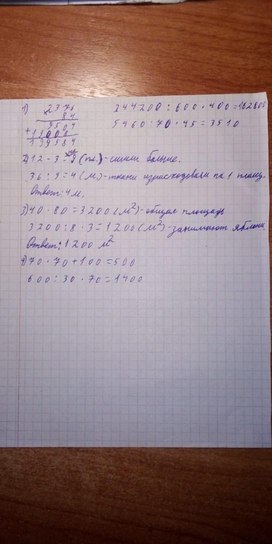 1) 2376
84
9504
+19008
199584
344200 : 600 · 400 = 162800
5460 : 70 · 45 = 3510
2) 12 - 3 = 9 (пл.) - сшили больше.
36 : 9 = 4 (м) - ткани израсходовали на 1 плащ.
Ответ: 4 м.
3) 40 · 80 = 3200 (м²) - общая площадь
3200 : 8 · 3 = 1200 (м²) - занимают яблони
Ответ: 1200 м²
4) 70 · 70 + 100 = 500
600 : 30 · 70 = 1400